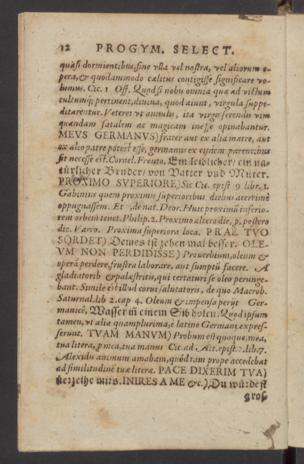 12 PROGYM. SELECT.
quasi dormientibus, sine vlla vel nostra, vel aliorum o-
pera, & quodammodo cælitus contigisse significare vo-
lumus. Cic. 1 Off. Quod si nobis omnia quæ ad victum
cultumq; pertinent, diuina, quod aiunt, virgula suppe-
ditarentur. Veteres vt annulis, ita virgis ferendis vim
quandam fatalem ac magicam inesse opinabantur.
MEVS GERMANVS) frater aut ex alia matre, aut
ex alio patre potest esse, germanus ex ijsdem parentibus
sit necesse est. Cornel. Fronto. Ein leiblicher/ ein na-
türlicher Bruder/ von Vatter vnd Muter.
PROXIMO SVPERIORE) Sic Cic. epist 9 libr. 1.
Gabinius quem proximis superioribus diebus acerrimè
oppugnassem. Et de nat. Deor. Huic proximũ inferio-
rem orbem tenet. Philip. 2. Proximo altero die, p, postero
die. Varro. Proxima superiora loca. PRAE TVO
SORDET) Deines ist zehen mal besser. OLE-
VM NON PERDIDISSE) Prouerbium, oleum &
operã perdere, frustra laborare, aut sumptũ facere. A
gladiatorib & palæstritis, qui certaturi se oleo perunge-
bant. Simile est illud corui salutatoris, de quo Macrob.
Saturnal. lib 2. cap 4. Oleum & impensa perijt Ger-
manicè, Wasser in einem Sib holen. Quod ipsum
tamen, vt alia quamplurima, è latino Germani expres-
serunt. TVAM MANVM) Probum est quoque, mea,
tua litera, p mea, tua manus Cic. ad Att. epist. 2. lib. 7.
Alexidis animum amabam, quòd tam prope accedebat
ad similitudinẽ tuæ literæ. PACE DIXERIM TVA)
verzeihe mirs. INIRES A ME &c.) Du würdest
groß